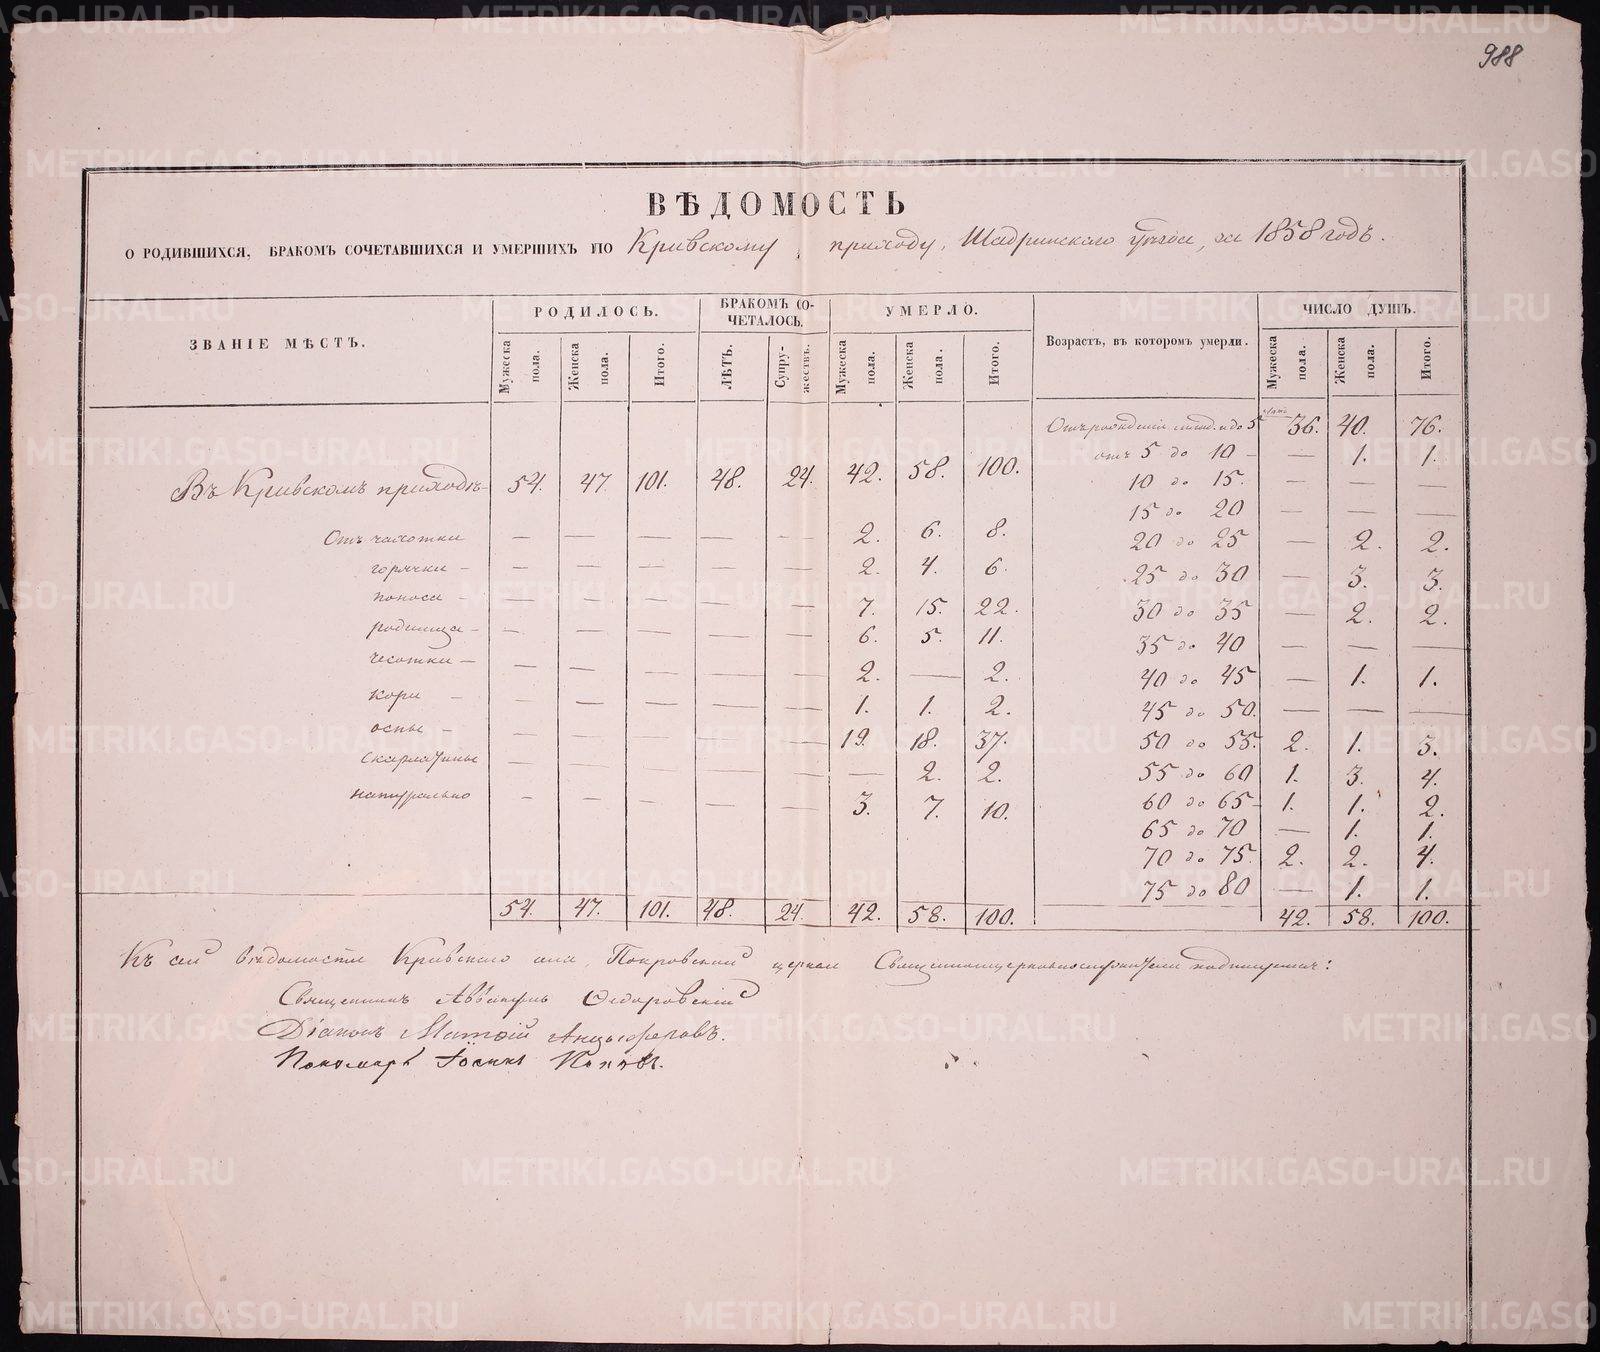 988
ВѢДОМОСТЬ
О РОДИВШИХСЯ, БРАКОМЪ СОЧЕТАВШИХСЯ И УМЕРШИХЪ ПО Кривскому приходу, Шадринскаго уѣзда, за 1858 годъ.
ЗВАНІЕ МѢСТЪ.
РОДИЛОСЬ.
БРАКОМЪ СО-
ЧЕТАЛОСЬ.
УМЕРЛО.
Возрастъ, въ которомъ умерли.
ЧИСЛО ДУШЪ.
Мужеска пола. Женска пола. Итого. ЛѢТЪ. Супру-жествъ. Мужеска пола. Женска пола. Итого. Мужеска пола. Женска пола. Итого.
Въ Кривскомъ приходѣ 54. 47. 101. 48. 24. 42. 58. 100.
Отъ чахотки — — — — — 2. 6. 8.
горячки — — — — — — 2. 4. 6.
поноса — — — — — — 7. 15. 22.
родимца — — — — — — 6. 5. 11.
чесотки — — — — — — 2. — 2.
кори — — — — — — 1. 1. 2.
оспы — — — — — — 19. 18. 37.
скарлатины — — — — — — 2. 2.
натурально — — — — — 3. 7. 10.
54. 47. 101. 48. 24. 42. 58. 100.
Отъ рожденія до 5 лѣтъ 36. 40. 76.
отъ 5 до 10 — — 1. 1.
10 до 15. — — —
15 до 20 — — —
20 до 25 — 2. 2.
25 до 30 — 3. 3.
30 до 35 — 2. 2.
35 до 40 — — —
40 до 45 — 1. 1.
45 до 50. — — —
50 до 55. 2. 1. 3.
55 до 60 1. 3. 4.
60 до 65 1. 1. 2.
65 до 70 — 1. 1.
70 до 75. 2. 2. 4.
75 до 80 — 1. 1.
42. 58. 100.
Къ сей вѣдомости Кривскаго села, Покровской церкви Священноцерковнослужители подписуемся:
Священникъ Аввакумъ Федоровскій
Діаконъ Матѳій Анцыферовъ.
Пономарь Іоаннъ Поповъ.
METRIKI.GASO-URAL.RU